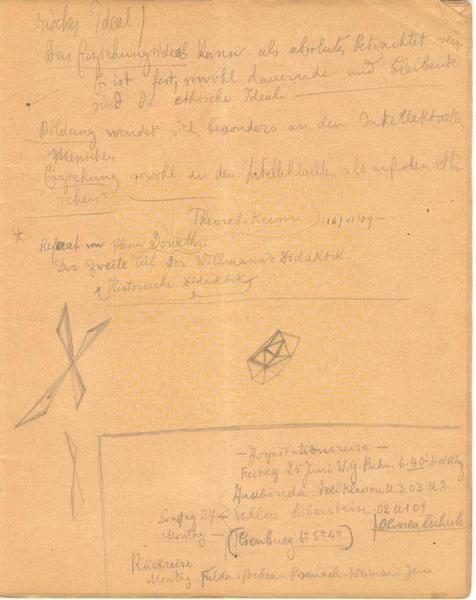 risches Ideal!
Das Erziehungsideal kann als absolutes betrachtet
Es ist fest, sowohl dauernde und bleibende
sind die ethische Ideal
Bildung wendet sich besonders an den Intellektuellen
Menschen
Erziehung sowohl zu den Intellektuellen als auf den ethi
schen
Theoretikum 16/VI/09
* Referat von Herrn Donath.
Der zweite Teil der Willmann's Didaktik.
(Historische Didaktik)
- Hospitationsreise -
Freitag 25 Juni W.G. Bahn. 6.40
Haubinda
Sonntag 27 Schloss Biberstein
Montag - Ilsenburg
Rückreise
Montag - Fulda - Bebra - Eisenach - Weimar - Jena